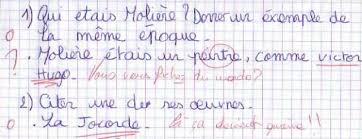 1) Qui étais Molière ? Donner un éxemple de
0 la même époque.
? . Molière étais un peintre, comme victor
Hugo. Vous vous fichez du monde ?
2) Citer une de ses œuvres.
0 . La Joconde. Et ça devient grave !!